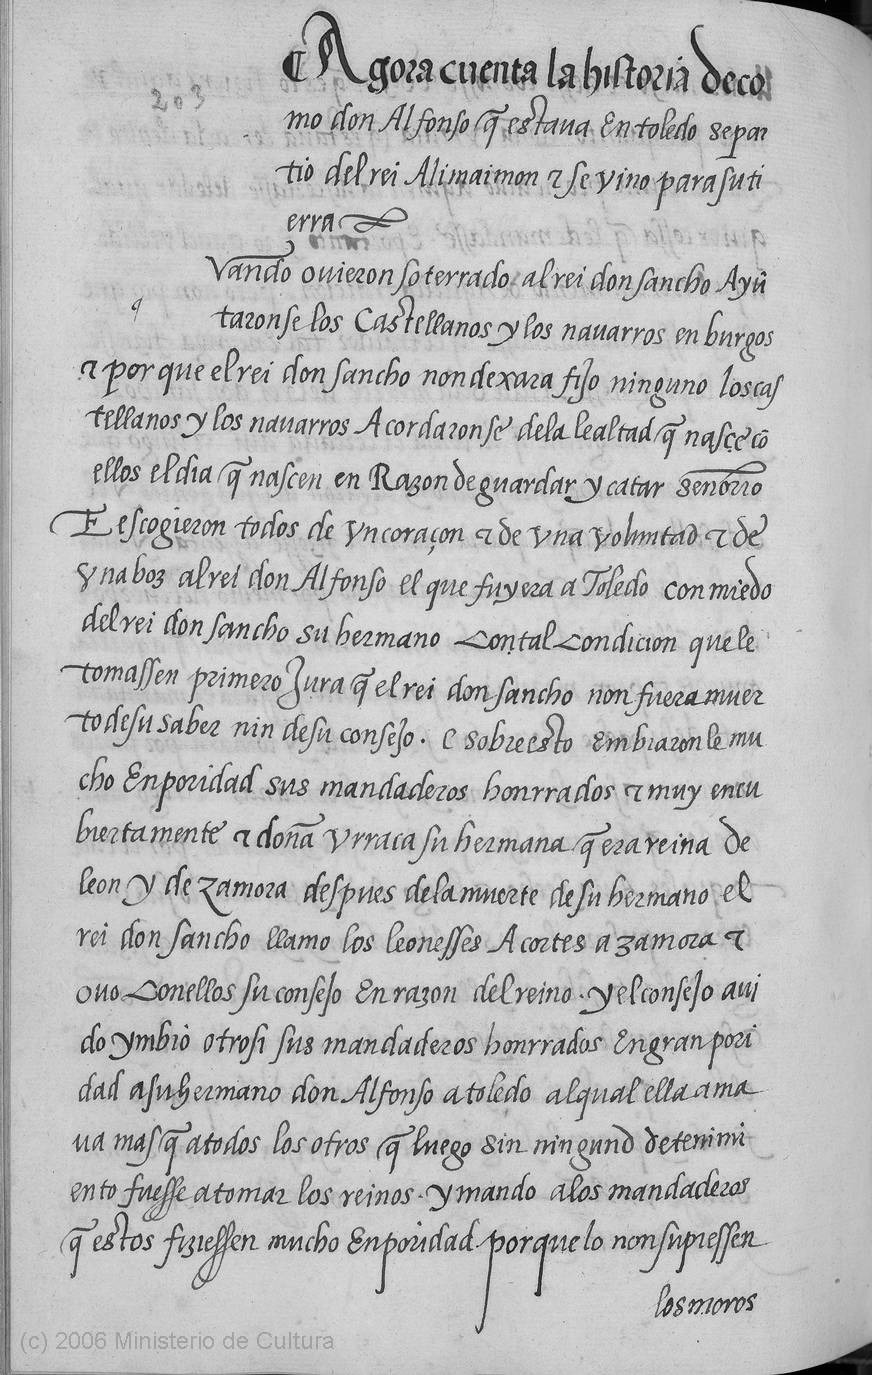 ¶ Agora cuenta la historia de co
203
mo don Alfonso q̃ estaua En toledo se par
tio del rei Alimaimon ⁊ se vino para su ti
erra
Vando ovieron soterrado al rei don sancho Ayũ
q
taronse los Castellanos y los nauarros en burgos
⁊ por que el rei don sancho non dexara fijo ninguno los cas
tellanos y los nauarros Acordaronse de la lealtad q̃ nasçe cõ
ellos el dia q̃ nascen en Razon de guardar y catar senorrio
E escogieron todos de vn coraçon ⁊ de vna voluntad ⁊ de
vna boz al rei don Alfonso el que fuyera a Toledo con miedo
del rei don sancho su hermano Con tal Condicion que le
tomassen primero Jura q̃ el rei don sancho non fuera muer
to de su saber nin de su consejo. e sobre esto embiaron le mu
cho En poridad sus mandaderos honrrados ⁊ muy encu
biertamente ⁊ doña Vrraca su hermana q̃ era reina de
leon y de zamora despues de la muerte de su hermano el
rei don sancho llamo los leonesses A cortes a zamora ⁊
ovo Con ellos su consejo En razon del reino. y el consejo aui
do ymbio otrosi sus mandaderos honrrados En gran pori
dad a su hermano don Alfonso a toledo al qual ella ama
ua mas q̃ a todos los otros q̃ luego sin ningund detenimi
ento fuesse a tomar los reinos. y mando a los mandaderos
q̃ estos fiziessen mucho En poridad porque lo non supiessen
los moros
(c) 2006 Ministerio de Cultura